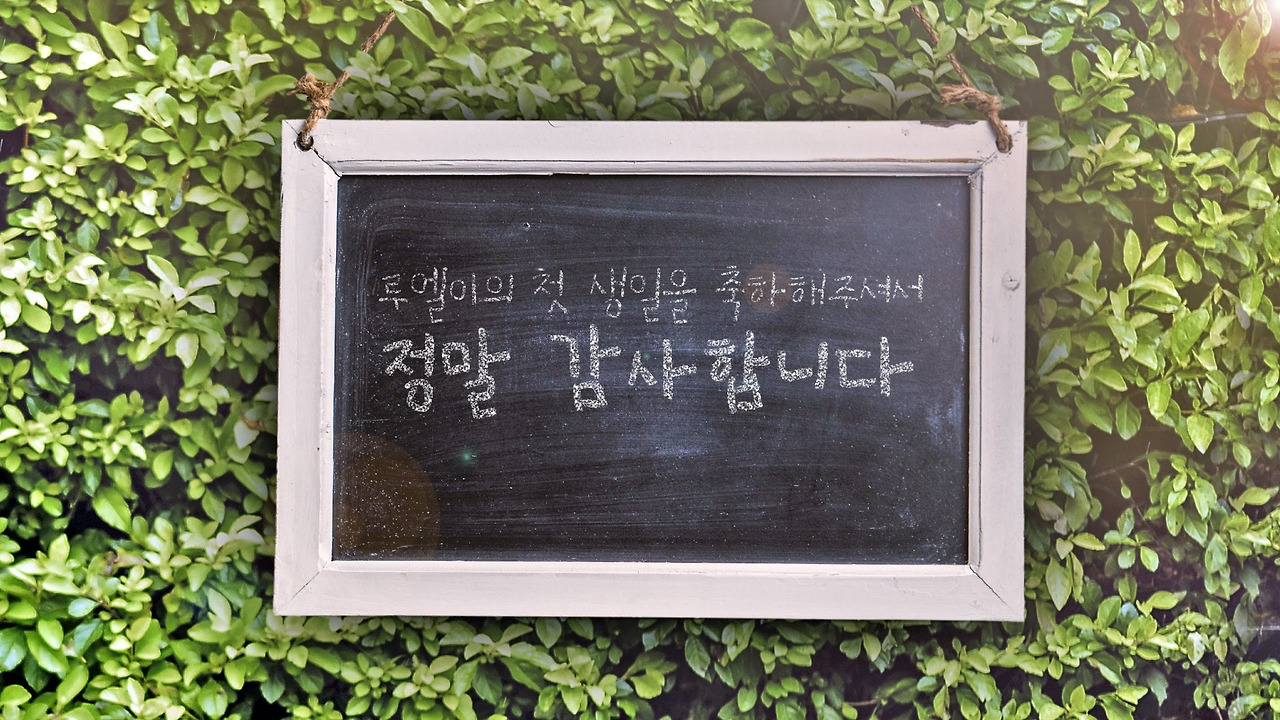 루엘이의 첫 생일을 축하해주셔서
정말 감사합니다